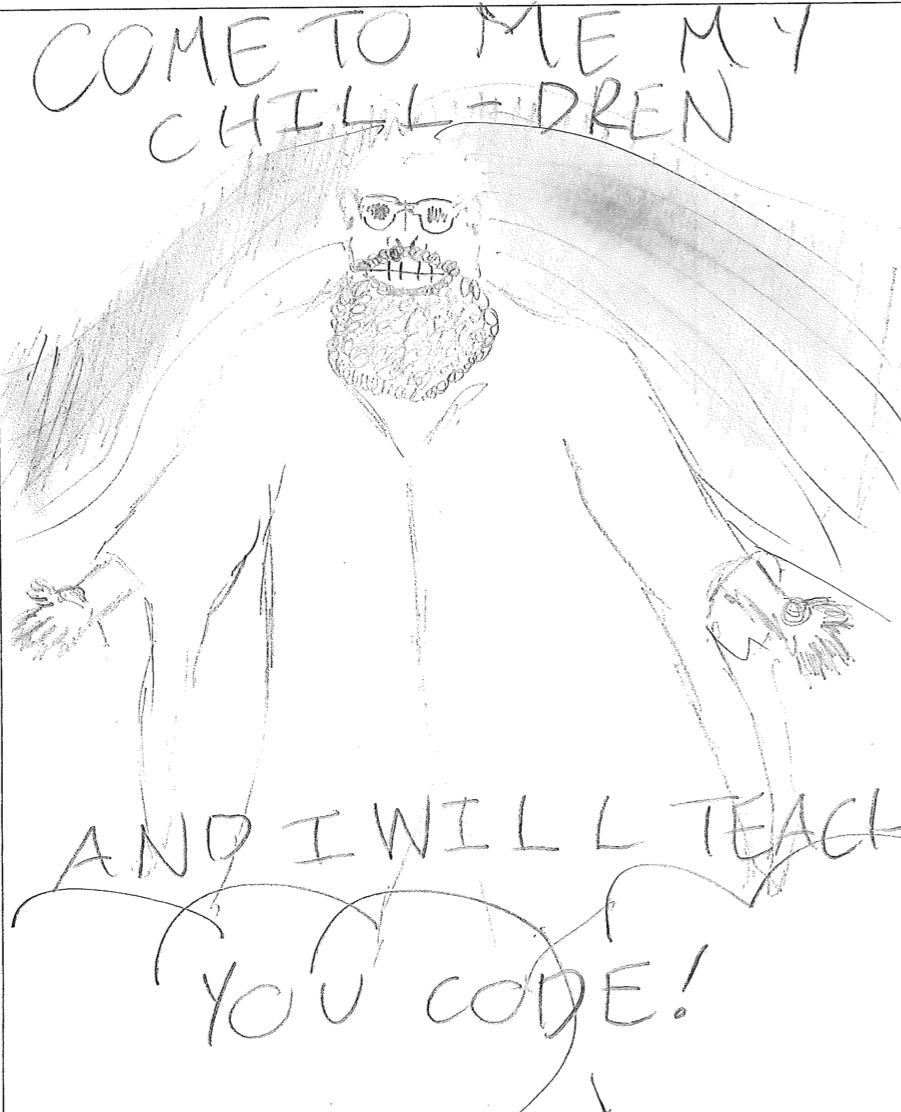 COME TO ME MY
CHILL-DREN
AND I WILL TEACH
YOU CODE!